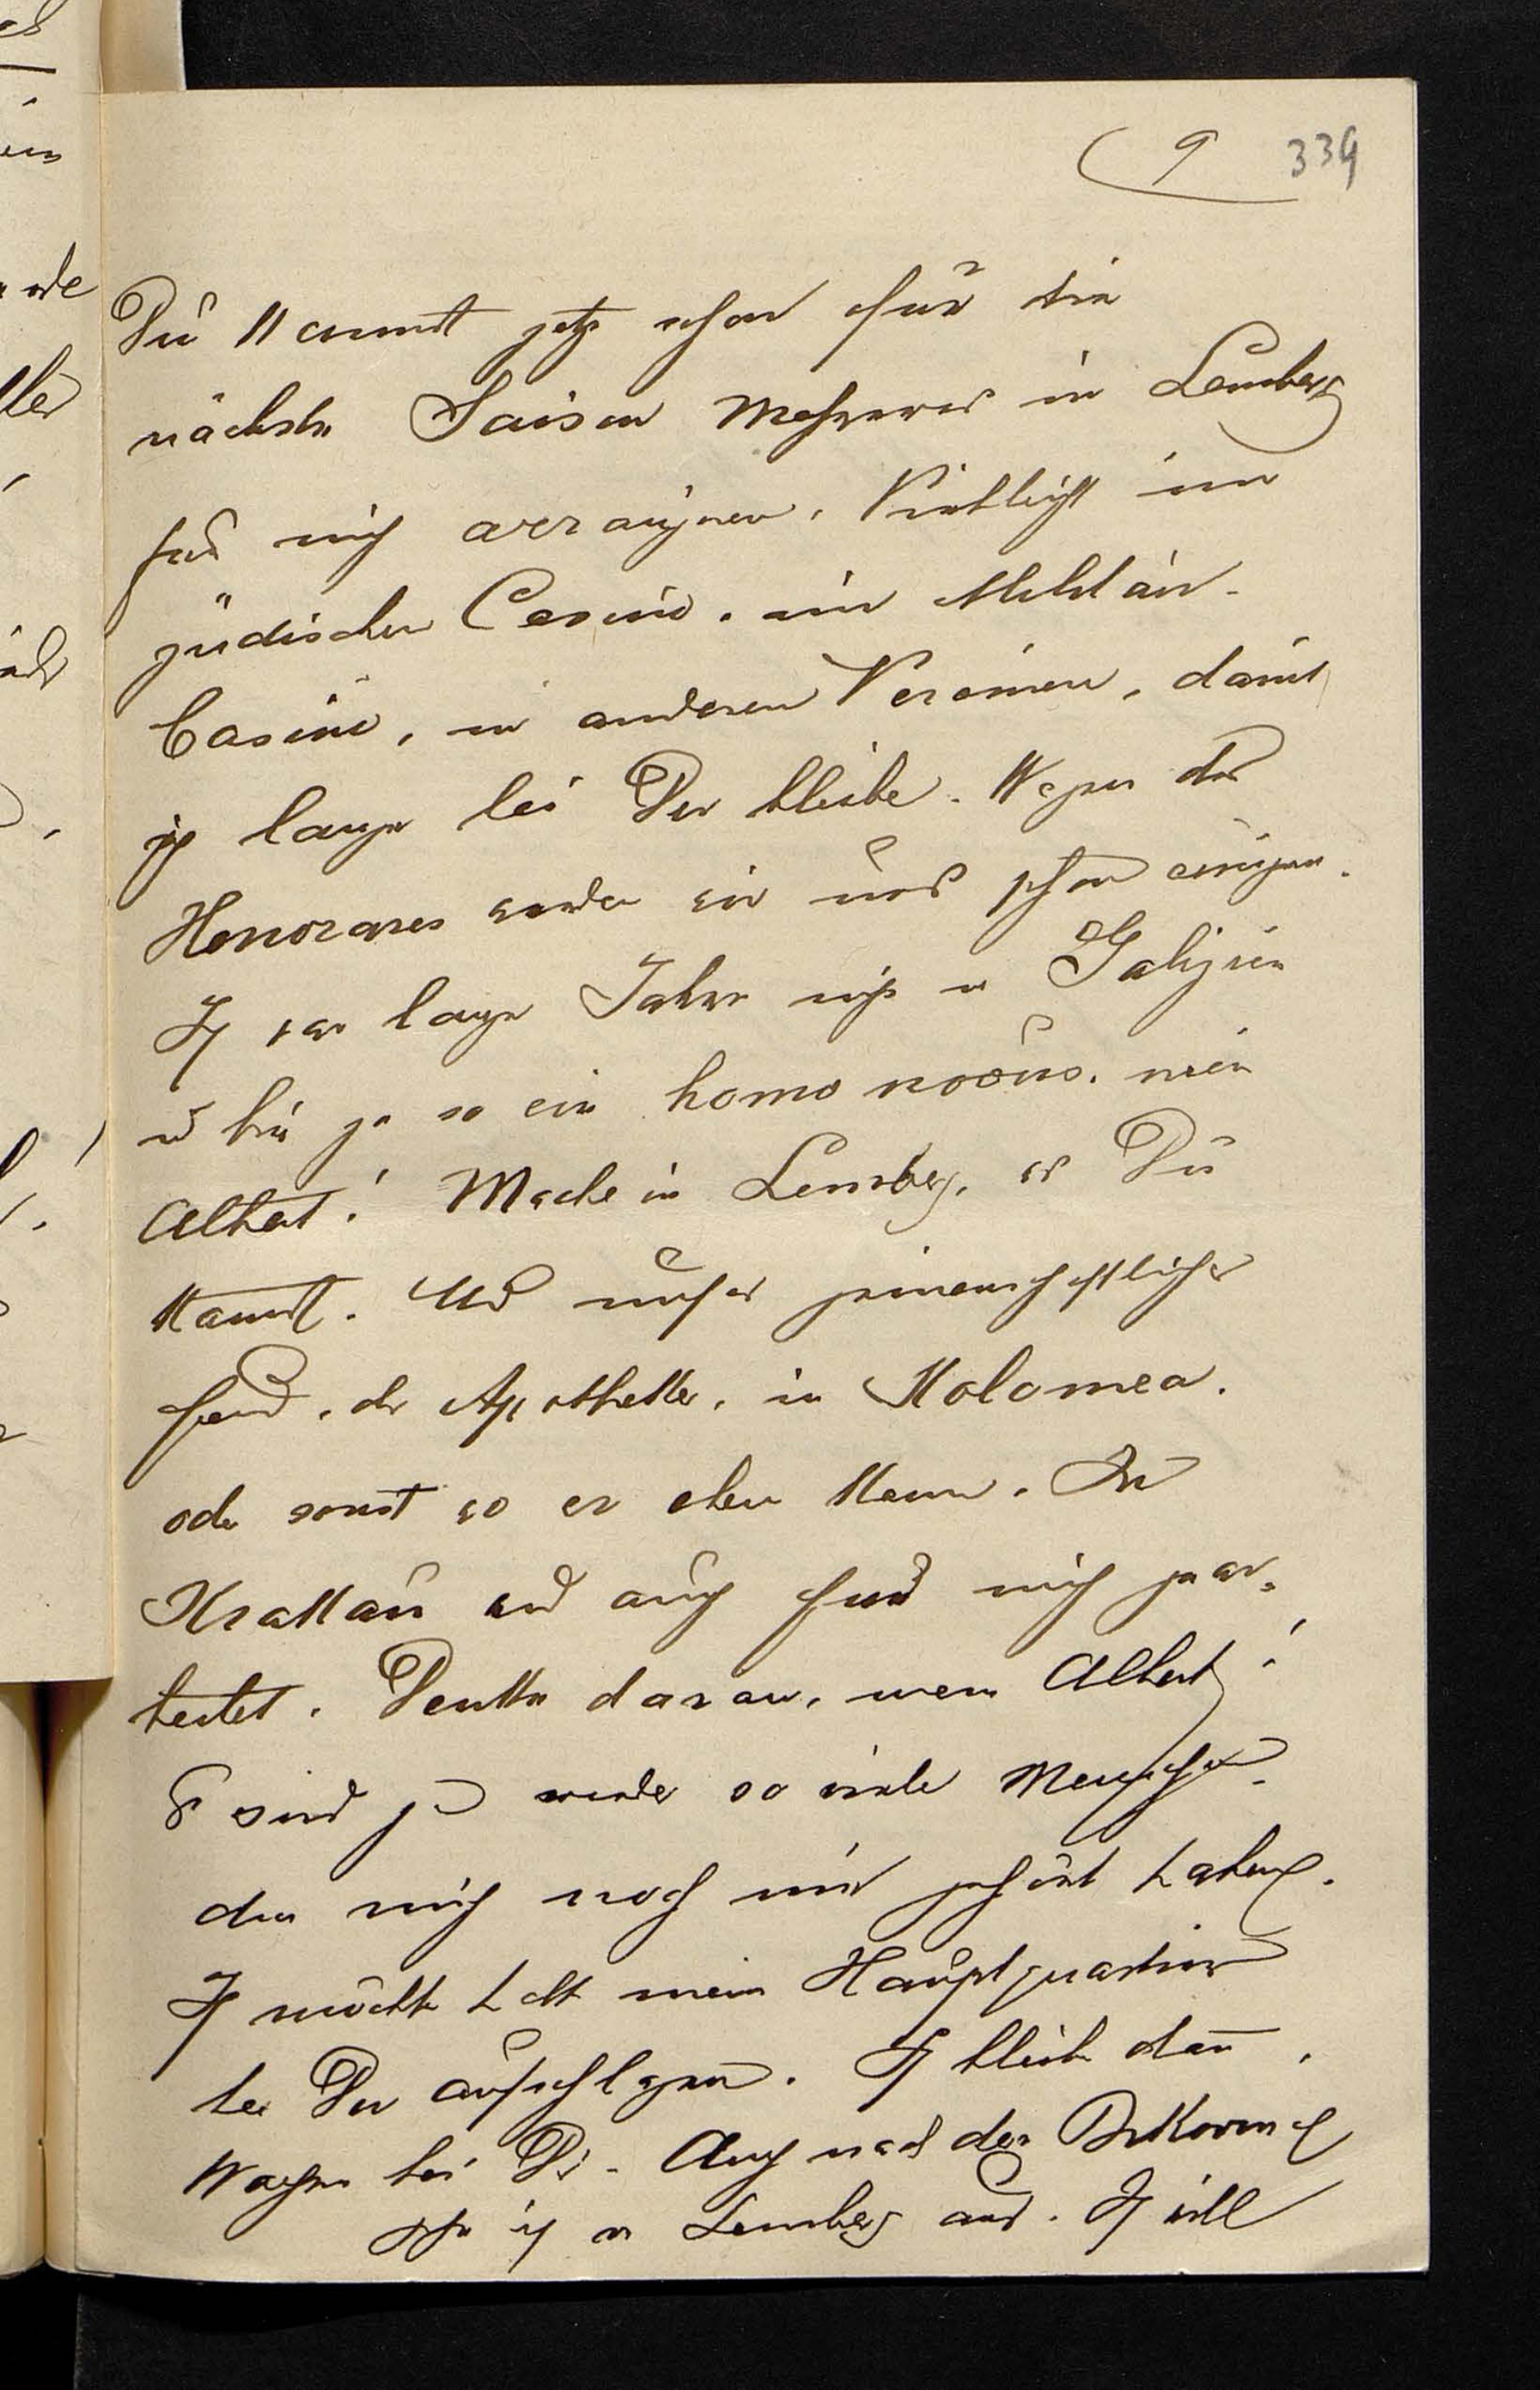 9 339
Du kannst jetzt schon für die
nächste Saison Mehreres in Lemberg
für mich arrangiren. Vielleicht im
jüdischen Casino, im Militär-
Casino, in anderen Vereinen, damit
ich lange bei Dir bleibe. Wegen des
Honorares werden wir uns schon einigen.
Ich war lange Jahre nicht in Galizien
u bin ja so ein homo novus, mein
Albert! Mache in Lemberg, was Du
kannst. Und unser gemeinschaftlicher
Freund, der Apotheker, in Kolomea.
oder sonst wo er eben kann. In
Krakau wird auch für mich gear-
beitet. Denke daran, mein Albert!
Es sind ja wieder so viele Menschen
die mich noch nie gehört haben.
Ich möchte halt mein Hauptquartier
bei Dir aufschlagen. Ich bleibe dann,
Wochen bei Dir. Auch nach der Bukowina
gehe ich von Lemberg aus. Ich will